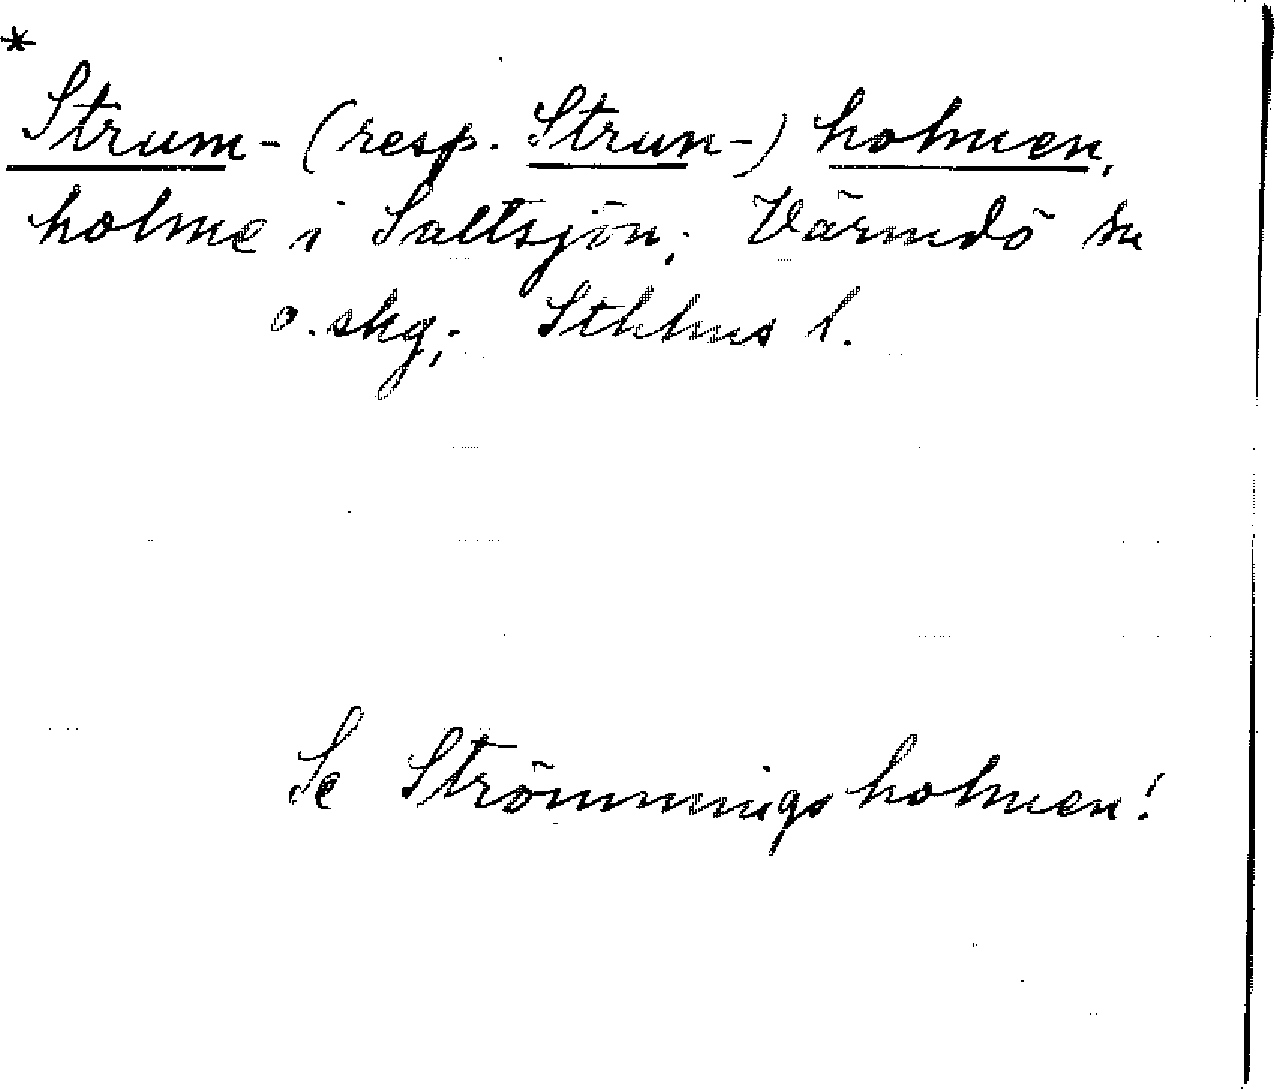 *
Strum- (resp. Strun-) holmen,
holme i Saltsjön; Värmdö sn
o. skg; Sthlms l.
Se Strömmingsholmen!